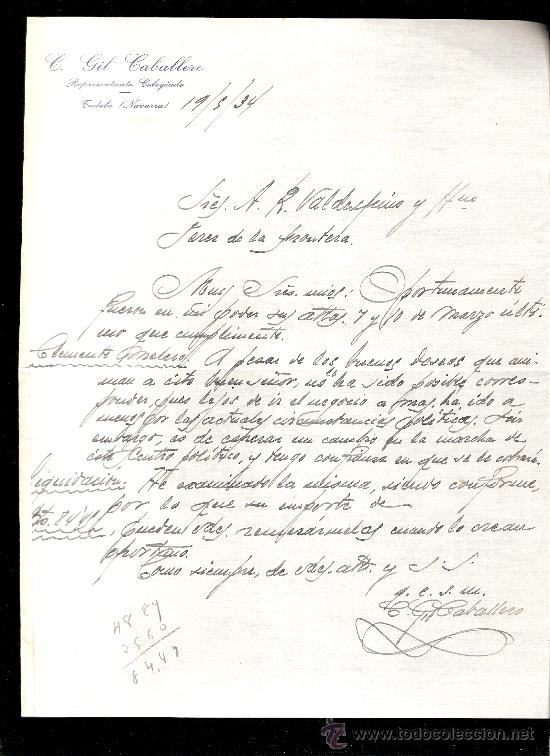 C. Gil Caballero
Representante Colegiado
Tudela (Navarra)
19/5/34
Sres. A. R. Valdespino y Hno
Jerez de la Frontera.
Muy Sres. mios: Oportunamente
fueron en mi poder sus attas. 7 y 10 de Marzo ulti-
mo que cumplimente.
Clemente A pesar de los buenos deseos que ani-
man a este buen señor, no le ha sido posible corres-
ponder, pues lejos de ir el negocio a mas, ha ido a
menos por las actuales circunstancias politicas. Sin
embargo, es de esperar un cambio en la marcha de
este Centro politico, y tengo confianza en que se le
liquidación. He examinado la misma, siendo conforme,
por lo que su importe de
Pts. 84'49, pueden Vdes. cuando lo crean
oportuno.
Como siempre, de Vdes. atto. y S. S.
q. e. s. m.
C. Gil Caballero
48 84
35 60
84.47
todocoleccion
www.todocoleccion.net